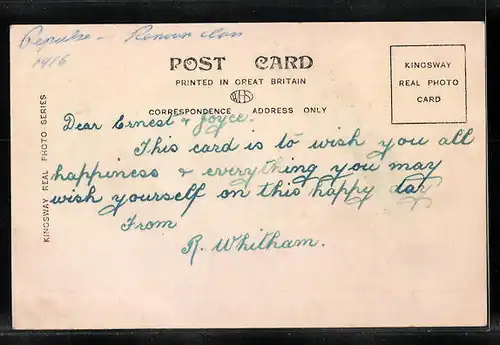 Repulse - Renown class
1916
POST CARD
PRINTED IN GREAT BRITAIN
KINGSWAY
REAL PHOTO
CARD
CORRESPONDENCE ADDRESS ONLY
KINGSWAY REAL PHOTO SERIES
Dear Ernest & Joyce.
This card is to wish you all
happiness & everything you may
wish yourself on this happy day
From
R. Whitham.